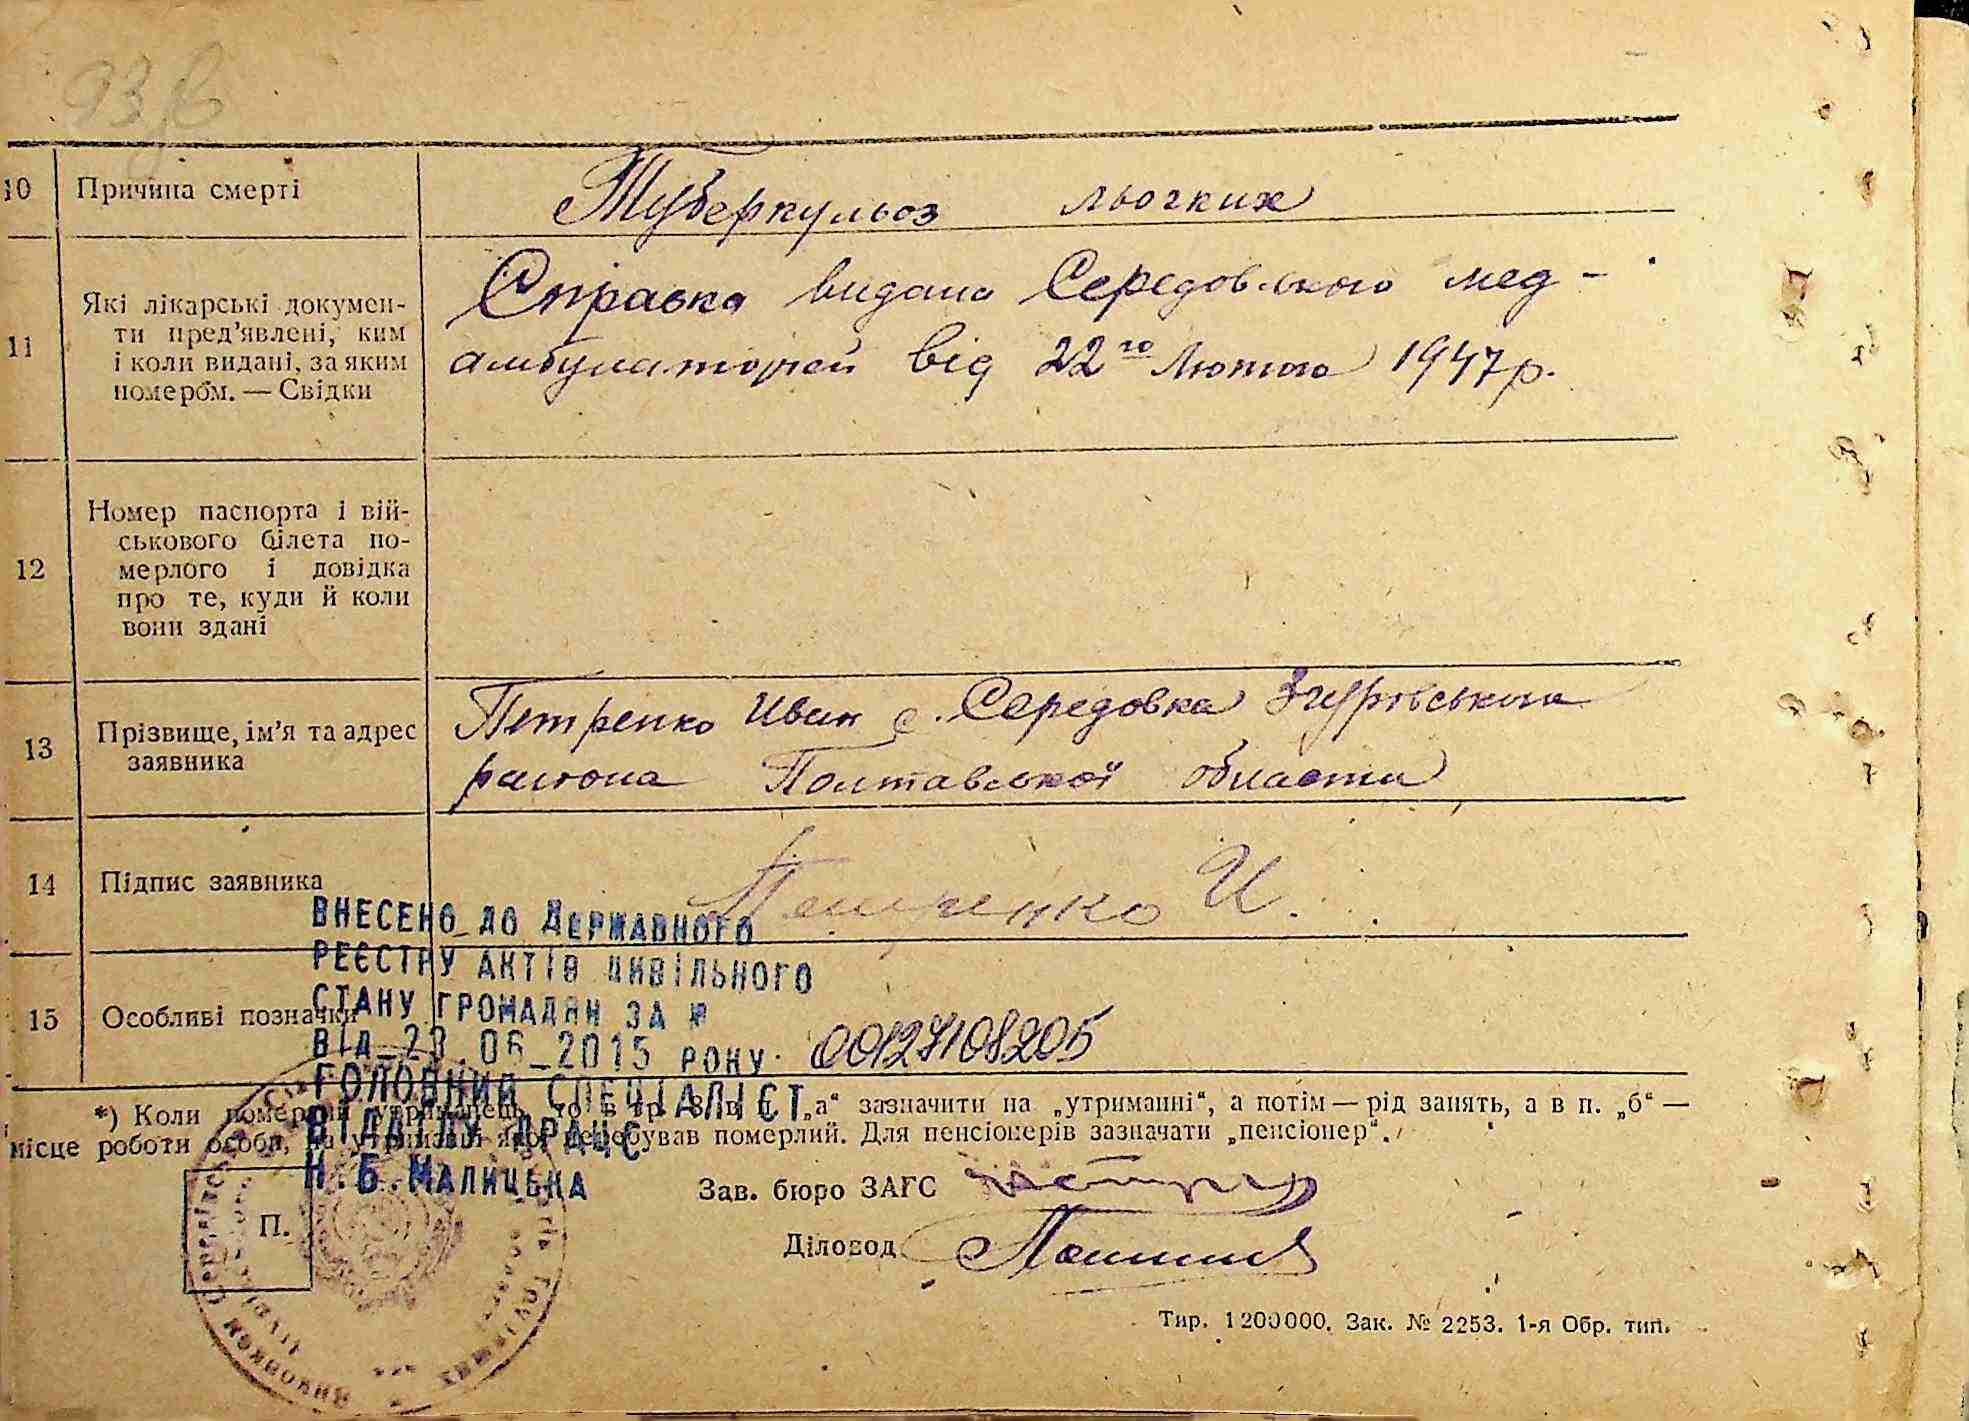 10 Причина смерті
Туберкульоз льогких
11 Які лікарські докумен-
ти пред'явлені, ким
і коли видані, за яким
номером. — Свідки
Справка видана Середовського мед-
амбулаторей від 22го Лютого 1947 р.
12 Номер паспорта і вій-
ськового білета по-
мерлого і довідка
про те, куди й коли
вони здані
13 Прізвище, ім'я та адрес
заявника
Петренко Иван с. Середовка Згурівського
района Полтавської области
14 Підпис заявника
Петренко И.
15 Особливі позначки
ВНЕСЕНО ДО ДЕРЖАВНОГО
РЕЄСТРУ АКТІВ ЦИВІЛЬНОГО
СТАНУ ГРОМАДЯН ЗА №
ВІД 23.06 2015 РОКУ. 00127108205
ГОЛОВНИЙ СПЕЦІАЛІСТ
ВІДДІЛУ ДРАЦС
Н.Б. МАЛИЦЬКА
*) Коли померлий утриманець, то в гр. 8 в п. „а“ зазначити на „утриманні“, а потім — рід занять, а в п. „б“ —
місце роботи особи, на утриманні якої перебував померлий. Для пенсіонерів зазначати „пенсіонер“.
Зав. бюро ЗАГС
П.
Діловод
Тир. 1200000. Зак. № 2253. 1-я Обр. тип.